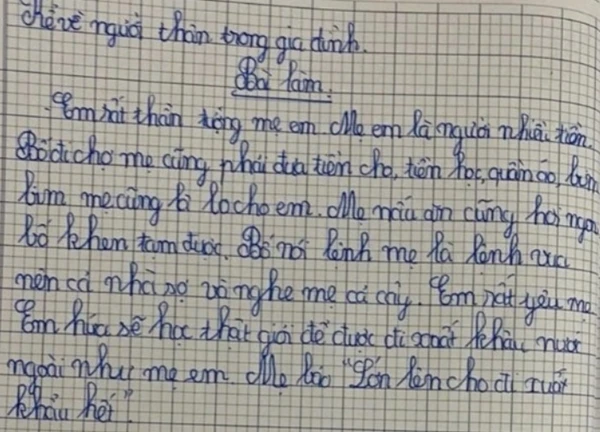 Kể về người thân trong gia đình.
Bài làm.
Em rất thần tượng mẹ em. Mẹ em là người nhiều tiền.
Bố đi chợ mẹ cũng phải đưa tiền cho, tiền học, quần áo, bim
bim mẹ cũng là lo cho em. Mẹ nấu ăn cũng hơi ngon
bố khen tạm được. Bố nói lệnh mẹ là lệnh vua
nên cả nhà sợ và nghe mẹ cả cậy. Em rất yêu mẹ
Em hứa sẽ học thật giỏi để được đi xuất khẩu nước
ngoài như mẹ em. Mẹ bảo "Lớn lên cho đi xuất
khẩu hết".